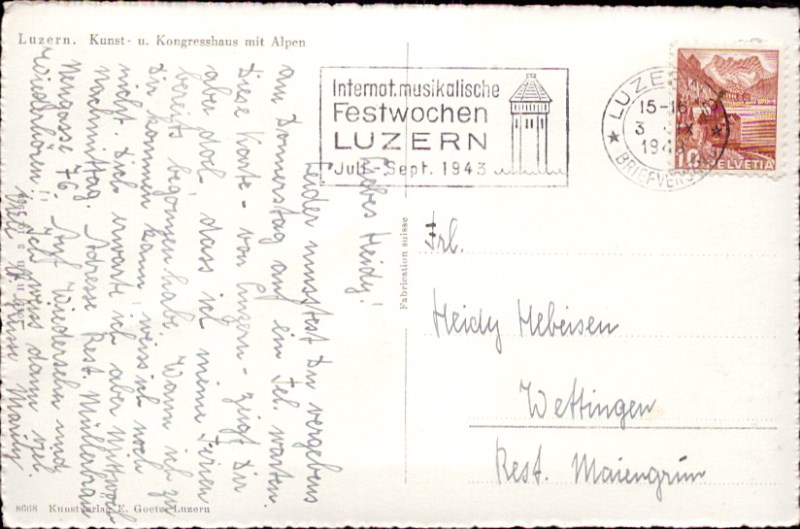 Luzern. Kunst- u. Kongresshaus mit Alpen
Internat. musikalische
Festwochen
LUZERN
Juli - Sept. 1943
LUZERN
15-16
3. IX
1943
BRIEFVERSAND
10 HELVETIA
Liebes Heidy!
Leider musstest Du vergebens
am Donnerstag auf ein Tel. warten
Diese Karte - von Luzern - zeigt Dir
aber doch, dass ich meine Ferien
bereits begonnen habe. Wann ich zu
Dir kommen kann, weiss ich noch
nicht. Dich erwarte ich aber Mittwoch
nachmittag. Adresse Rest. Müllerhaus
Nengasse 76. Auf Wiedersehn und
Wiederhören!! Ich weiss dann viel
Marily
Fabrication suisse
Frl.
Heidy Hebeisen
Wettingen
Rest. Maiengrün
8668 Kunstverlag E. Goetz, Luzern